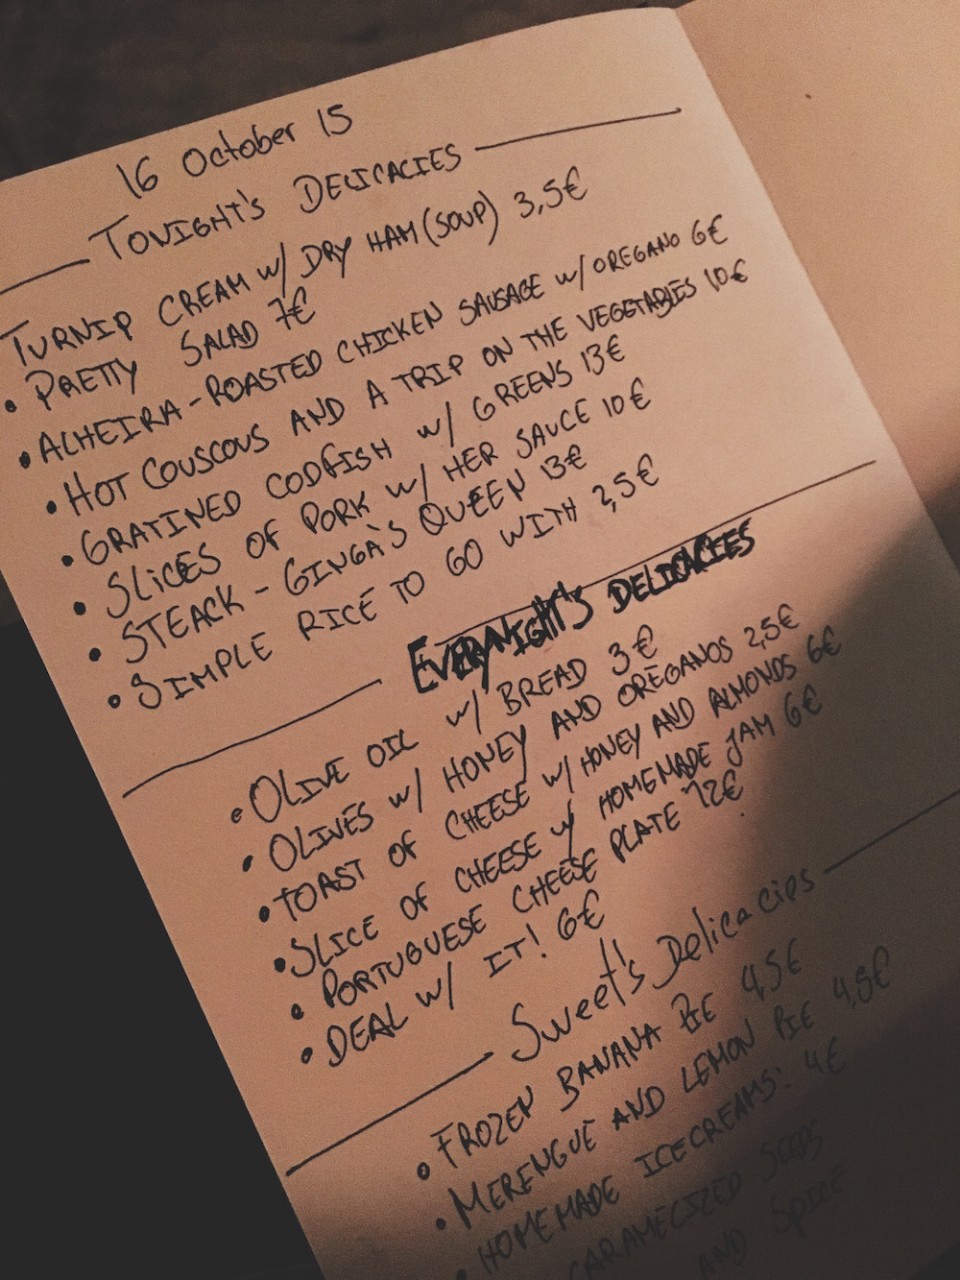 16 October 15
TONIGHT'S DELICACIES
TURNIP CREAM W/ DRY HAM (SOUP) 3,5€
• PRETTY SALAD 7€
• ALHEIRA - ROASTED CHICKEN SAUSAGE W/ OREGANO 6€
• HOT COUSCOUS AND A TRIP ON THE VEGETABLES 10€
• GRATINED CODFISH W/ GREENS 13€
• SLICES OF PORK W/ HER SAUCE 10€
• STEACK - GINGA'S QUEEN 13€
• SIMPLE RICE TO GO WITH 2,5€
EVERYNIGHT'S DELICACIES
• OLIVE OIL W/ BREAD 3€
• OLIVES W/ HONEY AND OREGANOS 2,5€
• TOAST OF CHEESE W/ HONEY AND ALMONDS 6€
• SLICE OF CHEESE W/ HOMEMADE JAM 6€
• PORTUGUESE CHEESE PLATE 12€
• DEAL W/ IT! 6€
Sweet's Delicacies
• FROZEN BANANA PIE 4,5€
• MERENGUE AND LEMON PIE 4,5€
• HOMEMADE ICECREAMS: 4€
CARAMELIZED SEEDS
AND SPICE